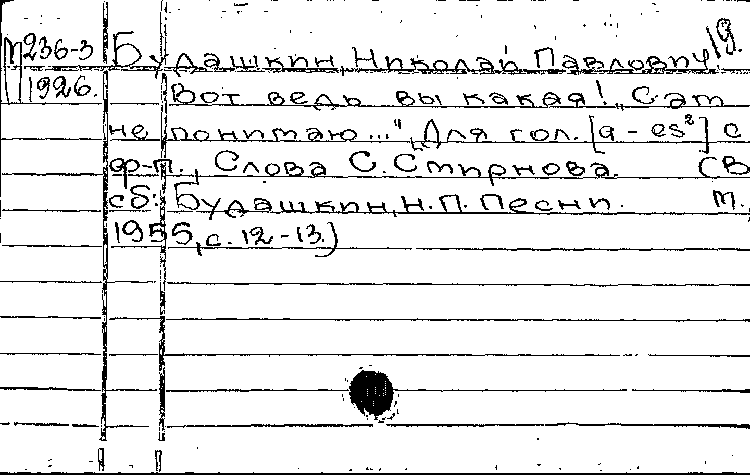 М236-3 Будашкин, Николай Павлович. 19.
1926. Вот ведь вы какая! „Сам
не понимаю..." Для гол. [a - es²] с
ф-п., Слова С. Смирнова. (В
сб: Будашкин, Н.П. Песни. М.,
1955, с. 12-13.)